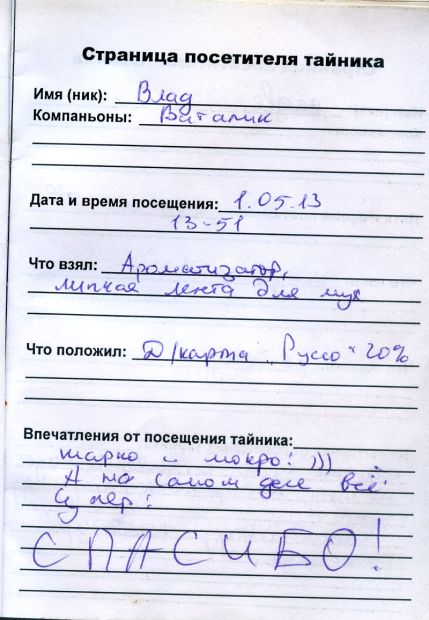 Страница посетителя тайника
Имя (ник): Влад
Компаньоны: Виталик
Дата и время посещения: 1.05.13
13-51
Что взял: Ароматизатор,
липкая лента для мух
Что положил: Д/карта "Руссо" 20%
Впечатления от посещения тайника:
жарко и мокро! )))
А на самом деле всё
Супер!
СПАСИБО!